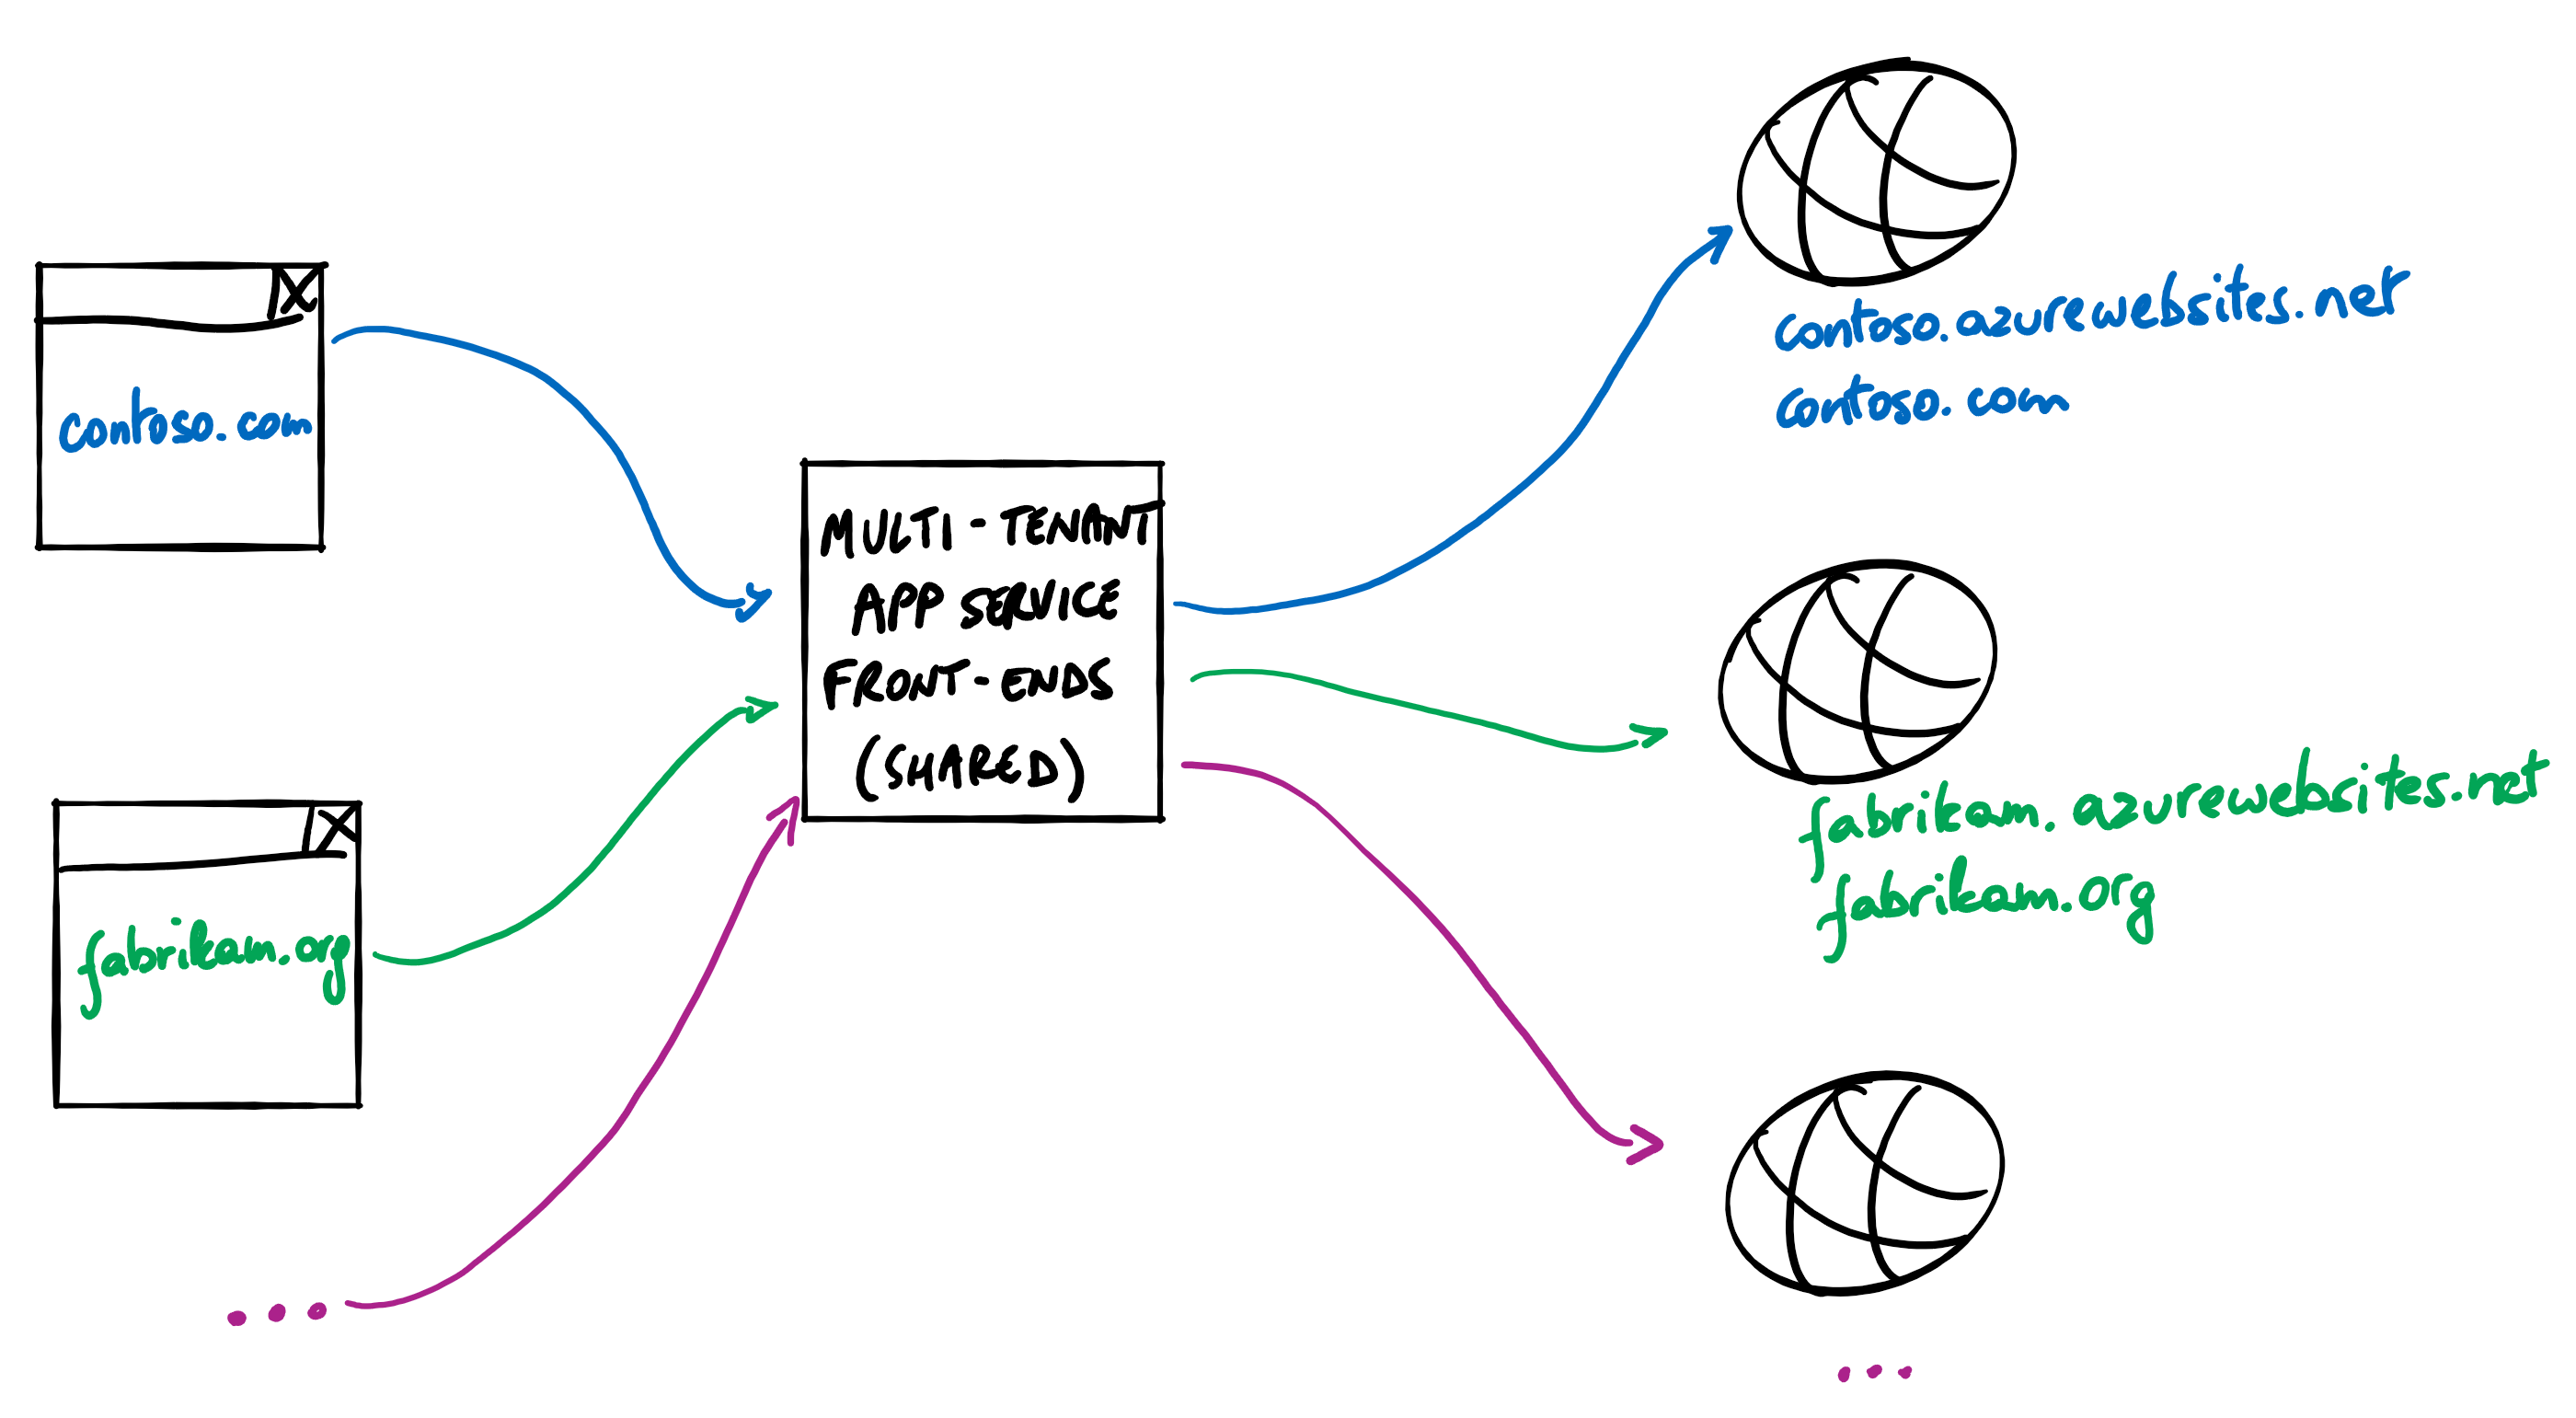 contoso.com
fabrikam.org
...
MULTI-TENANT
APP SERVICE
FRONT-ENDS
(SHARED)
contoso.azurewebsites.net
contoso.com
fabrikam.azurewebsites.net
fabrikam.org
...